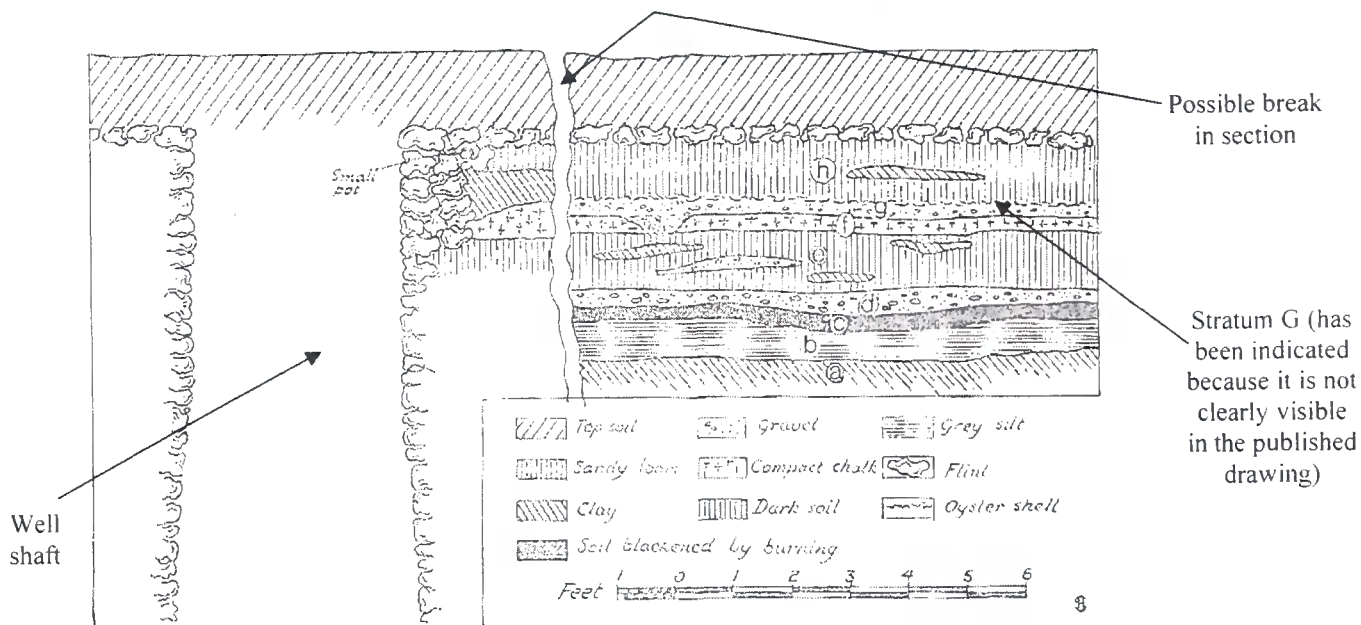 Possible break
in section
Small
pot
h
g
f
e
d
c
b
a
Stratum G (has
been indicated
because it is not
clearly visible
in the published
drawing)
Well
shaft
Top soil Gravel Grey silt
Sandy loam Compact chalk Flint
Clay Dark soil Oyster shell
Soil blackened by burning
Feet 1 0 1 2 3 4 5 6